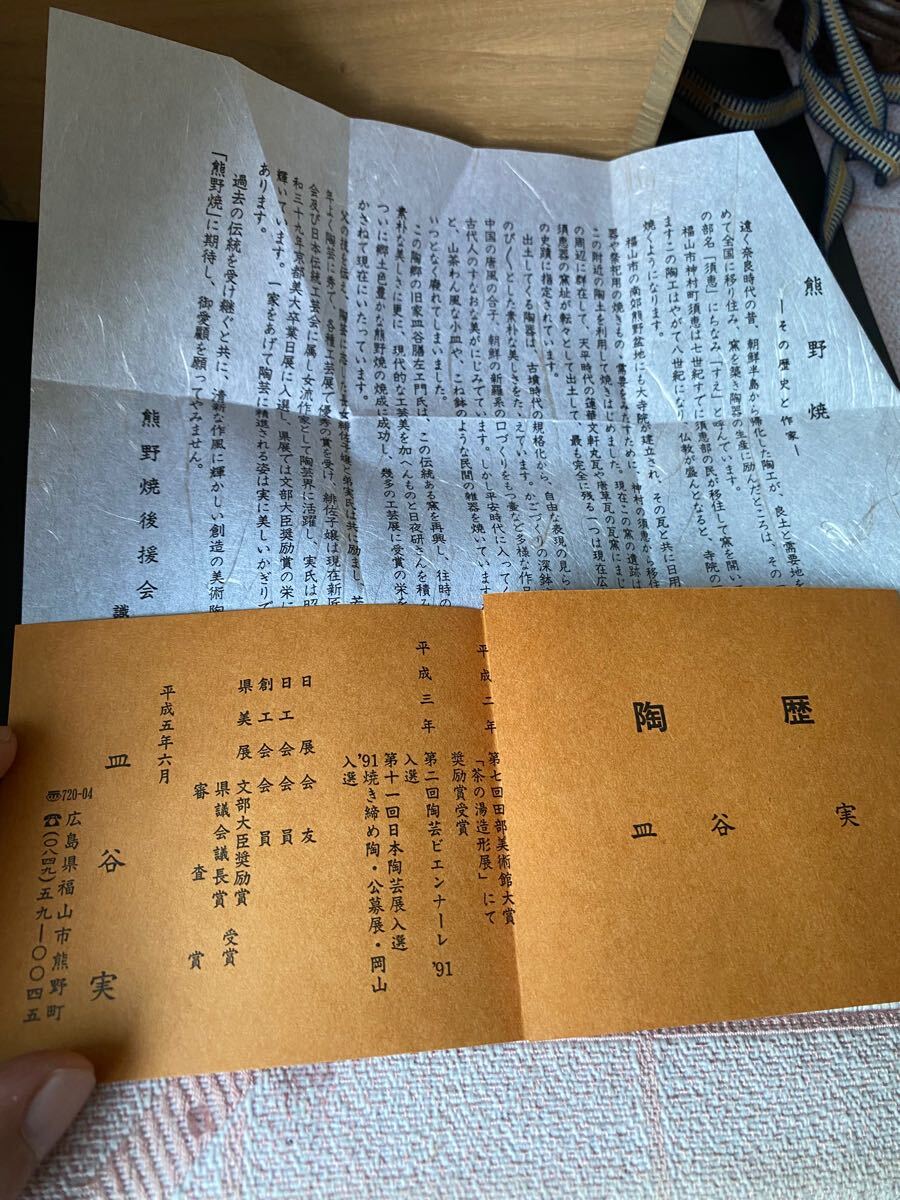 熊野焼
―その歴史と作家―
遠く奈良時代の昔、朝鮮半島から帰化した陶工が、良土と需要地を
めて全国に移り住み、窯を築き陶器の生産に励んだところは、その
の部名「須恵」にちなみ「すえ」と呼んでいます。
福山市神村町須恵は七世紀すでに須恵部の民が移住して窯を開い
ますこの陶工はやがて八世紀になり、仏教が盛んとなると、寺院の
焼くようになります。
福山市の南郊熊野盆地にも大寺院が建立され、その瓦と共に日用
器や祭祀用の焼きもの、需要をみたすために、神村の須恵から移
この附近の陶土を利用して焼きはじめました。現在この窯の遺跡は
の周辺に群在して、天平時代の蓮華文軒丸瓦や唐草瓦の瓦窯にまじ
須恵器の窯址が転々として出土して、最も完全に残る一つは現在広
の史蹟に指定されています。
出土してくる陶器は、古墳時代の規格化から、自由な表現の見ら
のび〱とした素朴な美しさをたたえています。かごづくりの深鉢
中国の唐風の合子、朝鮮の新羅系の口づくりをもつ壷など多様な作品
古代人のすなおな美がにじみでています。しかし平安時代に入って
と、山茶わん風な小皿や、こね鉢のような民間の雑器を焼いています
いつとなく廃れてしまいました。
この陶郷の旧家皿谷勝左エ門氏は、この伝統ある窯を再興し、往時の
素朴な美しさに更に、現代的な工芸美を加へんものと日夜研さんを積み
ついに郷土色豊かな熊野焼の焼成に成功し、幾多の工芸展に受賞の栄を
かさねて現在にいたっています。
父の技を伝え、陶芸に志した長女緋佐子嬢と弟実氏は共に励まし、若
年よく陶芸に秀で、各種工芸展で優秀の賞を受け、緋佐子嬢は現在新匠
会及び日本伝統工芸会に属し女流作家として陶芸界に活躍し、実氏は昭
和三十九年京都美大卒業日展に入選し、県展では文部大臣奨励賞の栄に
輝いています。一家をあげて陶芸に精進される姿は実に美しいかぎりで
あります。
過去の伝統を受け継ぐと共に、清新な作風に輝かしい創造の美術陶
「熊野焼」に期待し、御愛顧を願ってやみません。
熊野焼後援会
識
陶歴
皿谷実
平成二年 第七回田部美術館大賞
「茶の湯造形展」にて
奨励賞受賞
第二回陶芸ビエンナーレ '91
入選
平成三年 第十一回日本陶芸展入選
'91焼き締め陶・公募展・岡山
入選
日展会友
日工会会員
創工会会員
県美展 文部大臣奨励賞 受賞
県議会議長賞
審査賞
平成五年六月
皿谷実
〠720-04 広島県福山市熊野町
☎(〇八四九)五九―〇〇四五